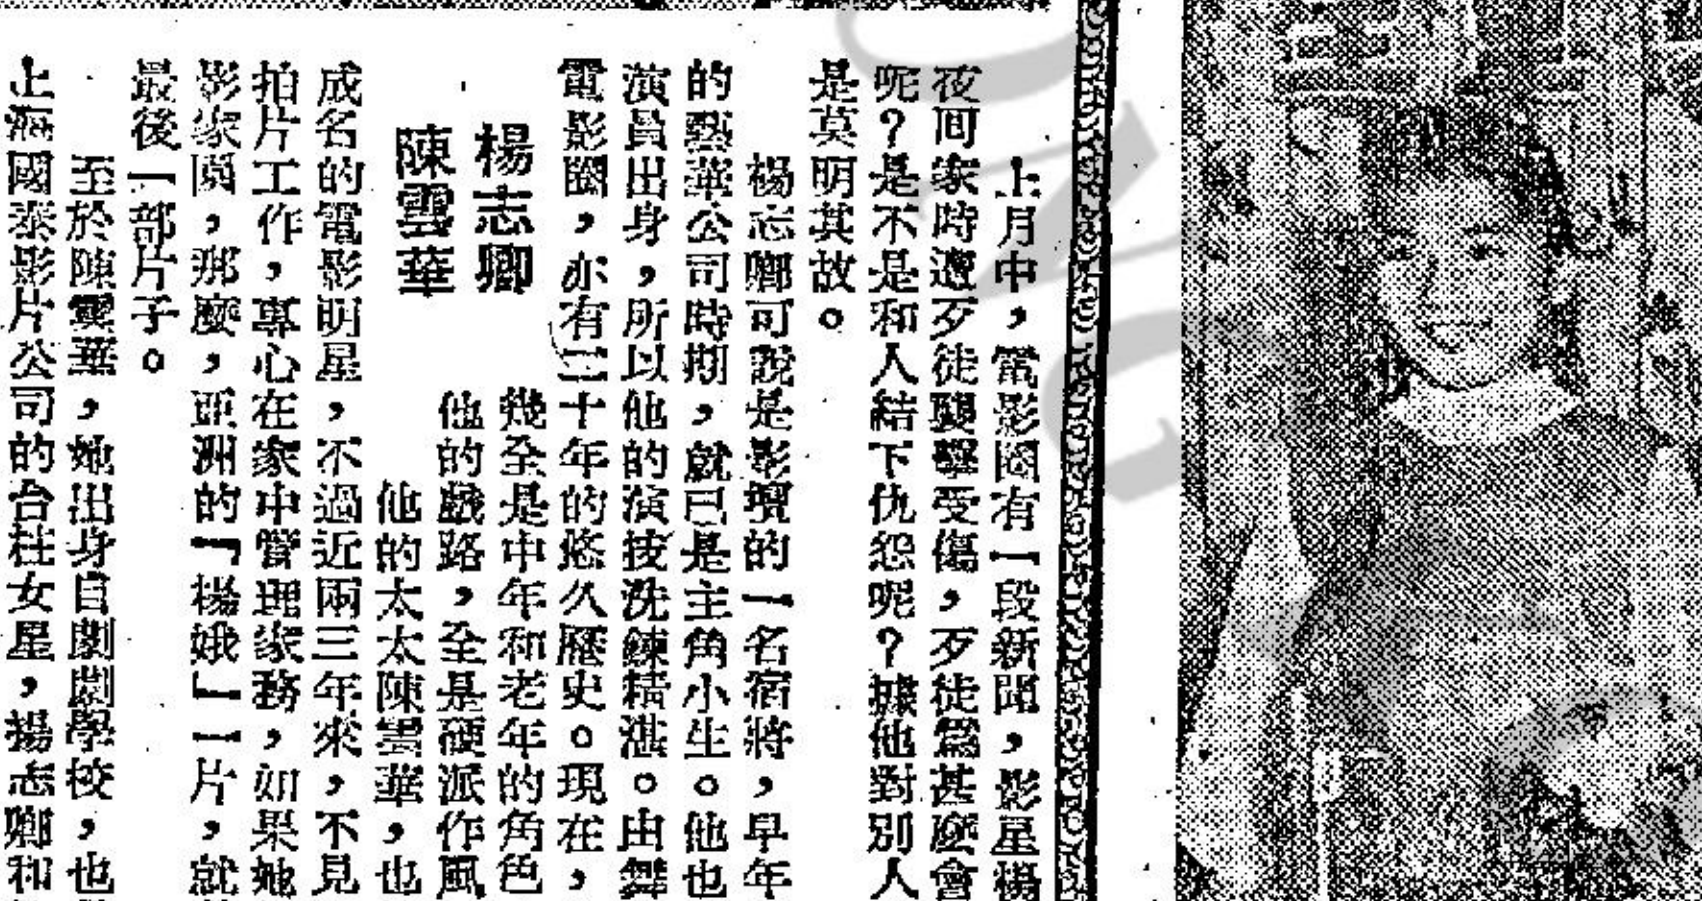 上月中，電影圈有一段新聞，影星楊
夜間家時遭歹徒襲擊受傷，歹徒爲甚麼會
呢？是不是和人結下仇怨呢？據他對別人
是莫明其故。
楊志卿可說是影壇的一名宿將，早年
的藝華公司時期，就已是主角小生。他也
演員出身，所以他的演技洗鍊精湛。由舞
電影圈，亦有二十年的悠久歷史。現在，
楊志卿
陳雲華
幾全是中年和老年的角色
他的戲路，全是硬派作風
他的太太陳雲華，也
成名的電影明星，不過近兩三年來，不見
拍片工作，專心在家中管理家務，如果她
影家圓，那麼，亞洲的「楊娥」一片，就
最後一部片子。
至於陳雲華，她出身自劇劇學校，也
上海國泰影片公司的台柱女星，楊志卿和